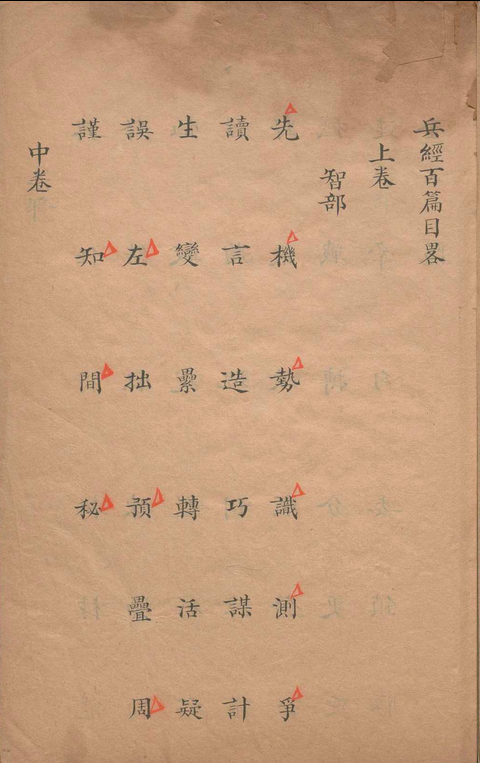 兵經百篇目畧
上卷
智部
先機勢識測爭
讀言造巧謀計
生變纍轉活疑
誤左拙預疊周
謹知間秘
中卷